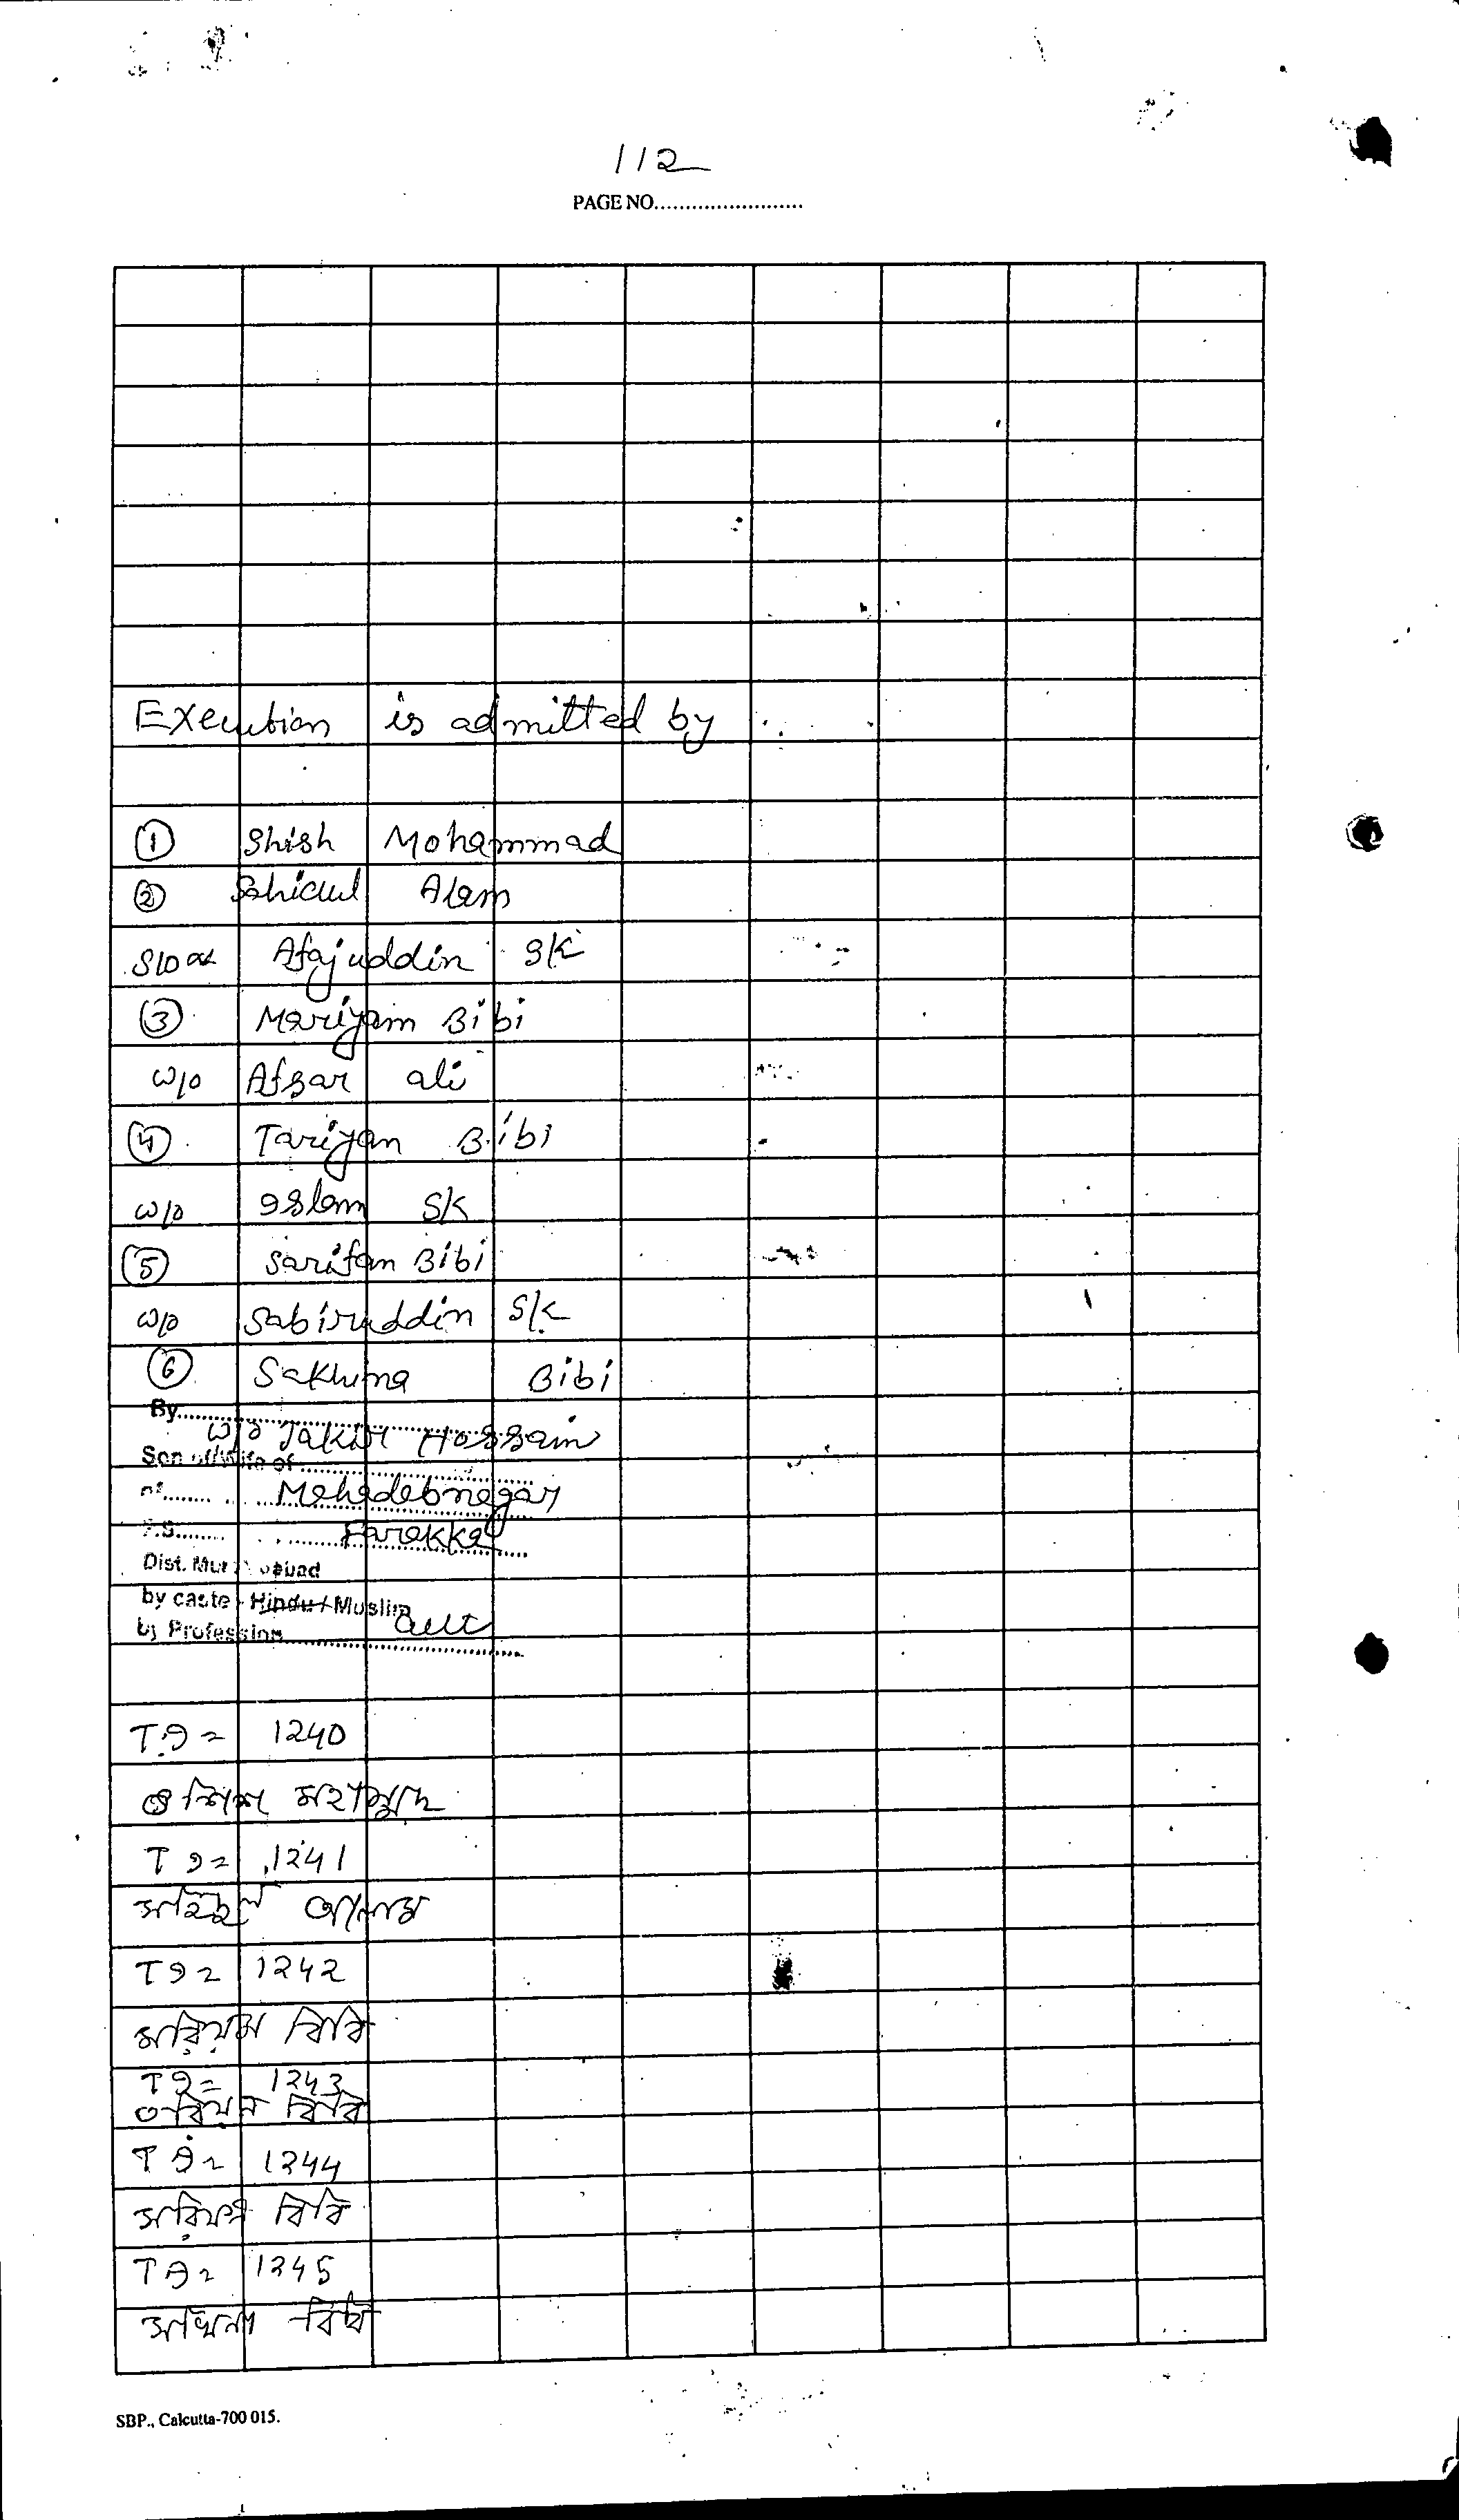 112
PAGE NO........................
Execution is admitted by
① Shish Mohammad
② Sahidul Alam
S/O Afajuddin SK
③ Mariyam Bibi
W/O Afsar ali
④ Tariyan Bibi
W/O Islam SK
⑤ Sarifan Bibi
W/O Sabiruddin SK
⑥ Sakhina Bibi
By
W/O Jakir Hossain
Son of/Wife of
of Mahadebnagar
P.S. Farakka
Dist. Murshidabad
by caste Hindu / Muslim
by Profession Cult
T.I = 1240
শিশ মহাম্মদ
T I = 1241
সহিদুল আলাম
T I = 1242
মরিয়ম বিবি
T I = 1243
তরিয়ন বিবি
T I = 1244
সরিফন বিবি
T I = 1245
সখিনা বিবি
SBP., Calcutta-700 015.